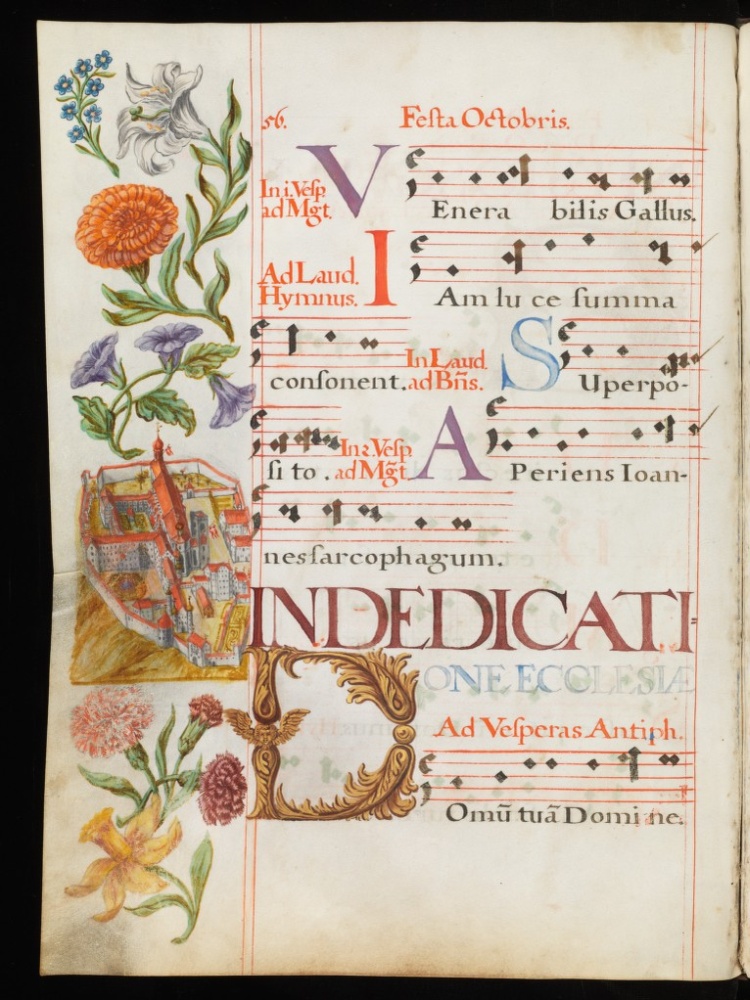 56. Festa Octobris.
In i. Vesp. ad Mgt. VEnera bilis Gallus.
Ad Laud. Hymnus. IAm lu ce summa
consonent. In Laud. ad Bñs. SUperpo-
si to. In 2. Vesp. ad Mg̃t. APeriens Ioan-
nes sarcophagum.
IN DEDICATI-
ONE ECCLESIÆ
Ad Vesperas Antiph.
DOmũ tuã Domi ne.